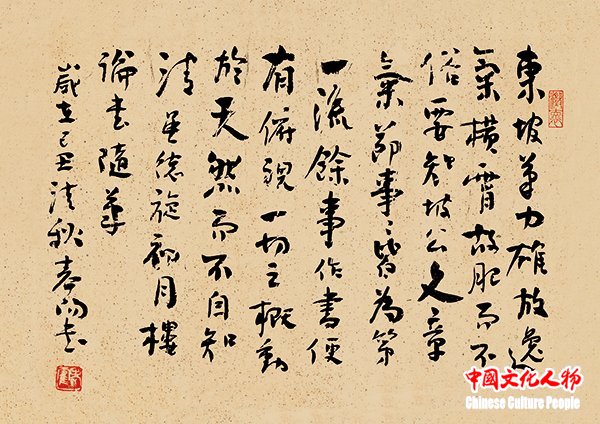 東坡筆力雄放逸
氣橫霄故肥而不
俗要知坡公文章
氣節事〻皆為第
一流餘事作書便
有俯視一切之概動
於天然而不自知
清吳德旋初月樓
論書隨筆
歲在己丑清秋
中國文化人物
Chinese Culture People